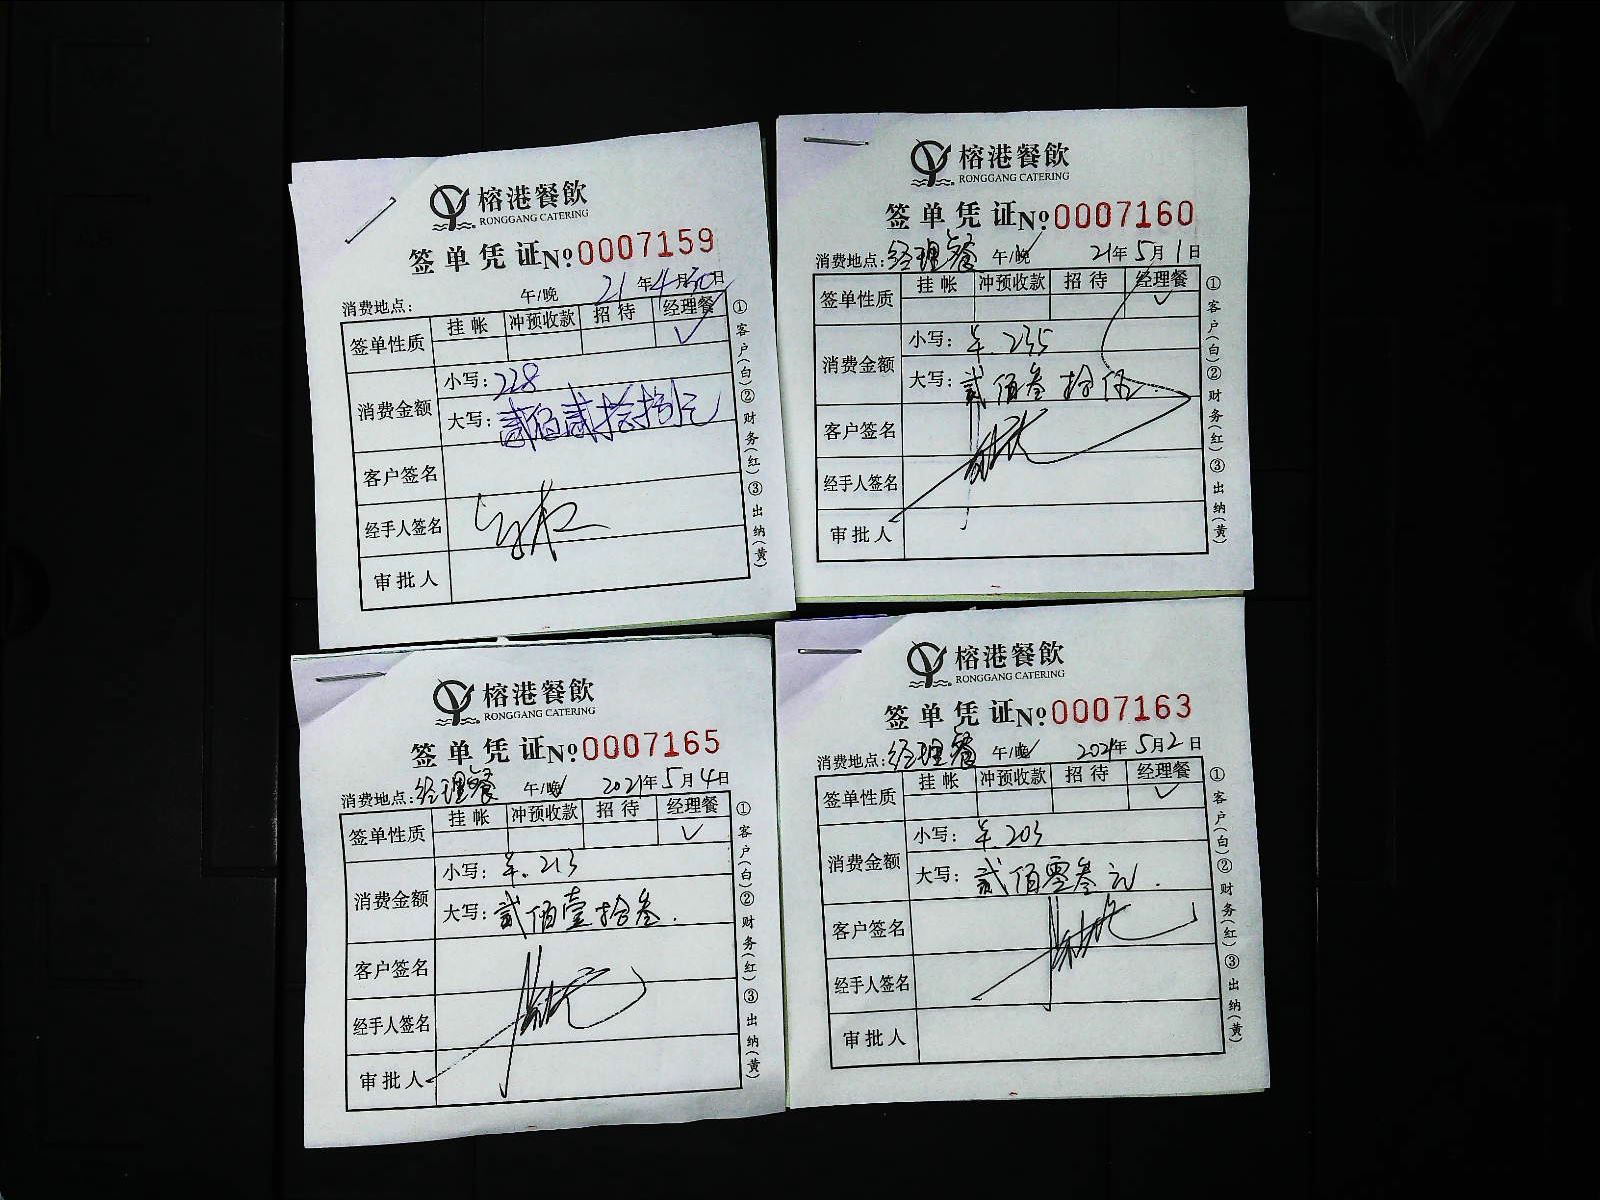 榕港餐飲
RONGGANG CATERING
签单凭证№0007159
消费地点: 午/晚 21年4月30日
签单性质 挂帐 冲预收款 招待 经理餐
✓
消费金额 小写:228
大写:贰佰贰拾捌元
客户签名
经手人签名
审批人
①客户(白)②财务(红)③出纳(黄)
榕港餐飲
RONGGANG CATERING
签单凭证№0007160
消费地点:经理餐 午/晚✓ 21年5月1日
签单性质 挂帐 冲预收款 招待 经理餐
✓
消费金额 小写:羊.235
大写:贰佰叁拾伍.
客户签名
经手人签名
审批人
①客户(白)②财务(红)③出纳(黄)
榕港餐飲
RONGGANG CATERING
签单凭证№0007165
消费地点:经理餐 午/晚✓ 2021年5月4日
签单性质 挂帐 冲预收款 招待 经理餐
✓
消费金额 小写:羊.213
大写:贰佰壹拾叁.
客户签名
经手人签名
审批人
①客户(白)②财务(红)③出纳(黄)
榕港餐飲
RONGGANG CATERING
签单凭证№0007163
消费地点:经理餐 午/晚✓ 2021年5月2日
签单性质 挂帐 冲预收款 招待 经理餐
✓
消费金额 小写:羊.203
大写:贰佰零叁元.
客户签名
经手人签名
审批人
①客户(白)②财务(红)③出纳(黄)